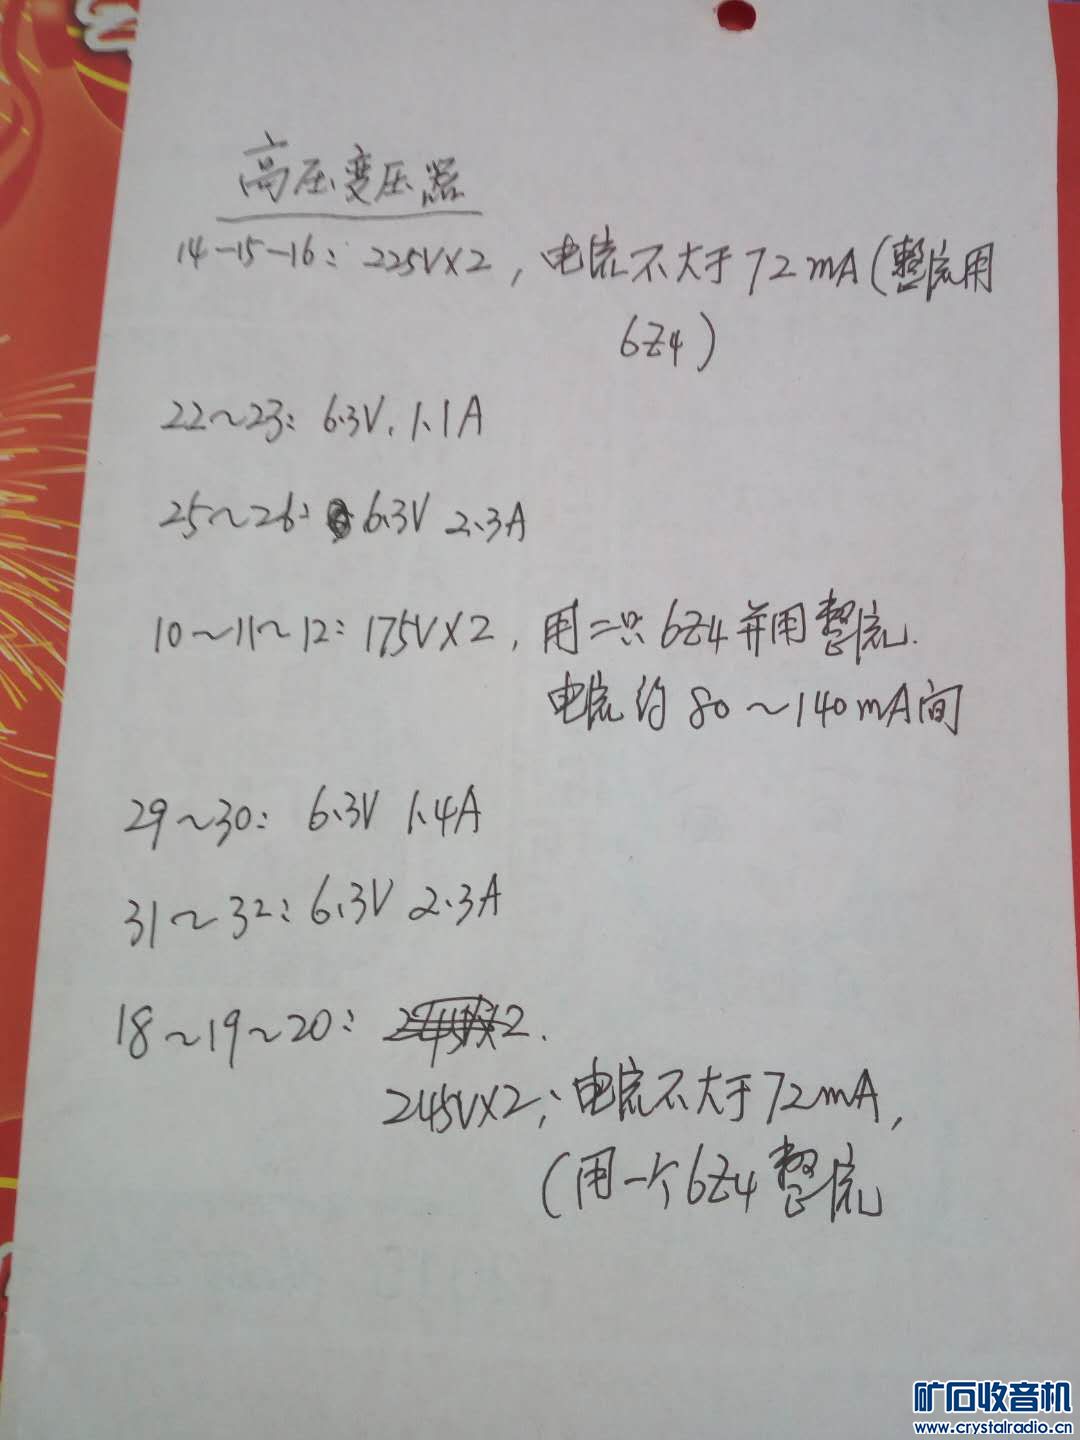 高压变压器
14-15-16：225V×2，电流不大于72mA(整流用
6Z4)
22～23：6.3V，1.1A
25～26：6.3V 2.3A
10～11～12：175V×2，用二只6Z4并用整流.
电流约80～140mA间
29～30：6.3V 1.4A
31～32：6.3V 2.3A
18～19～20：
245V×2；电流不大于72mA，
(用一个6Z4整流
矿石收音机
www.crystalradio.cn